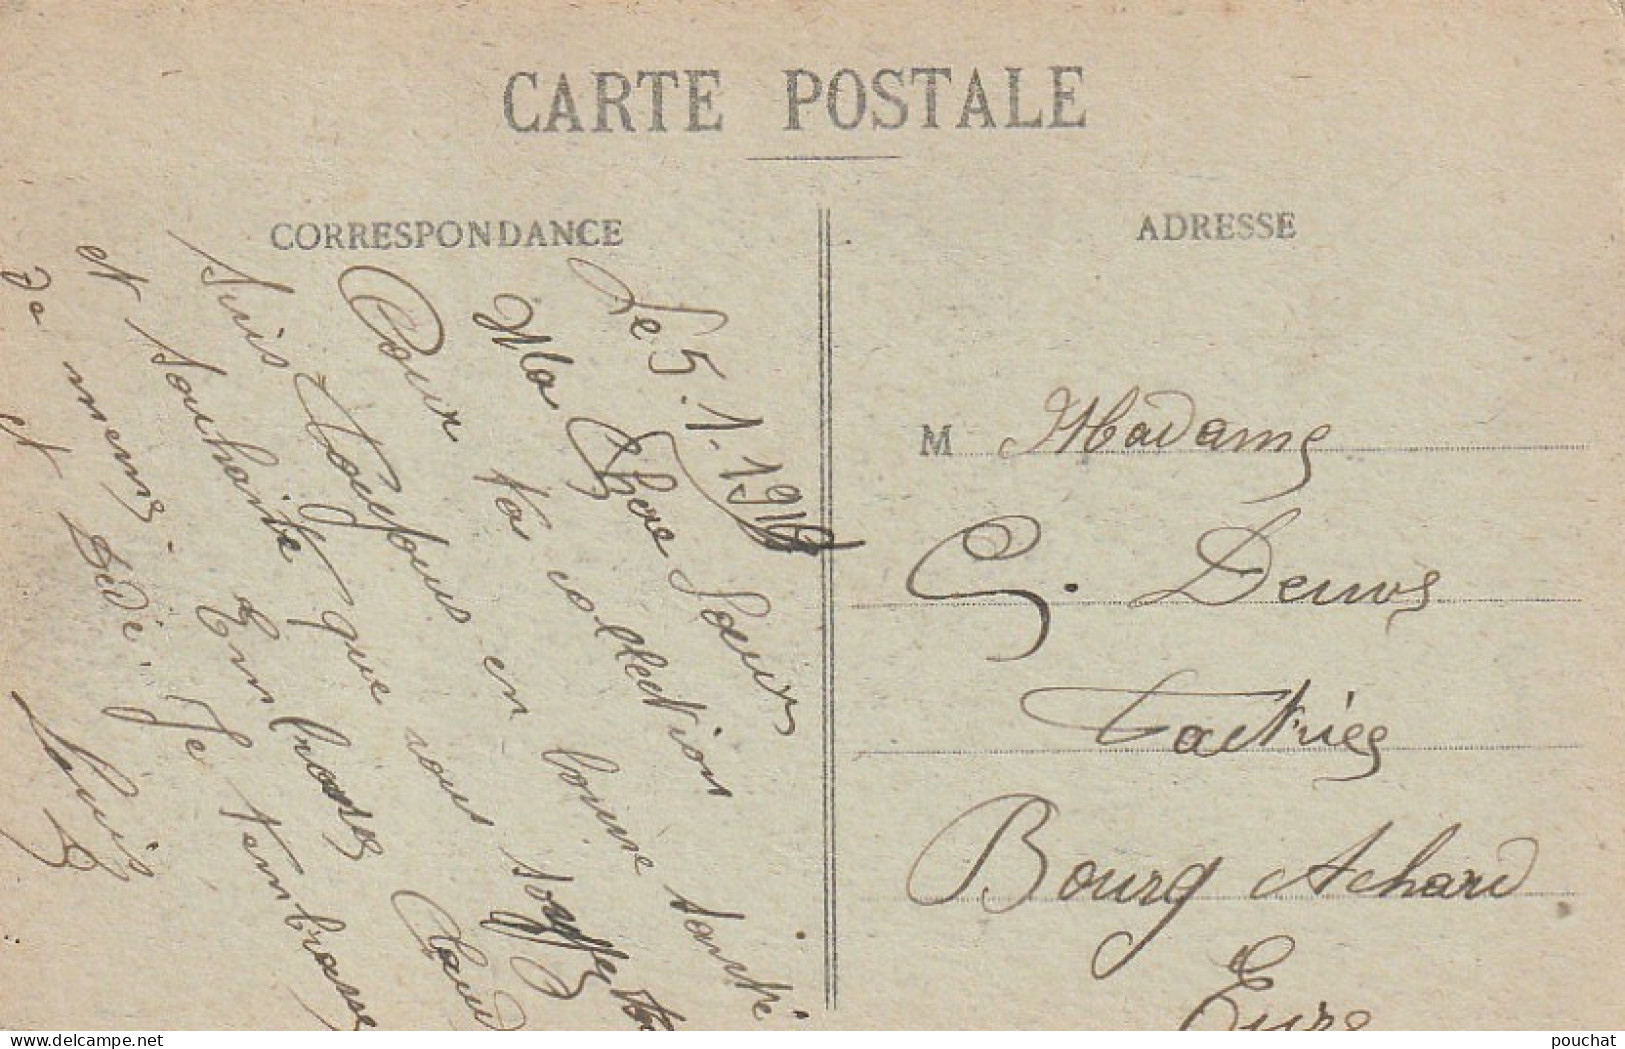 CARTE POSTALE
CORRESPONDANCE
ADRESSE
Le 5.1.191
Ma Chère Soeur
Pour ta collection
suis toujours en bonne santé
et souhaite que vous soyez
de meme. Embrasse
et Dédé. Je tembrasse
Louis
M Madame
G.
Bourg Achard
Eure
delcampe.net
pouchat